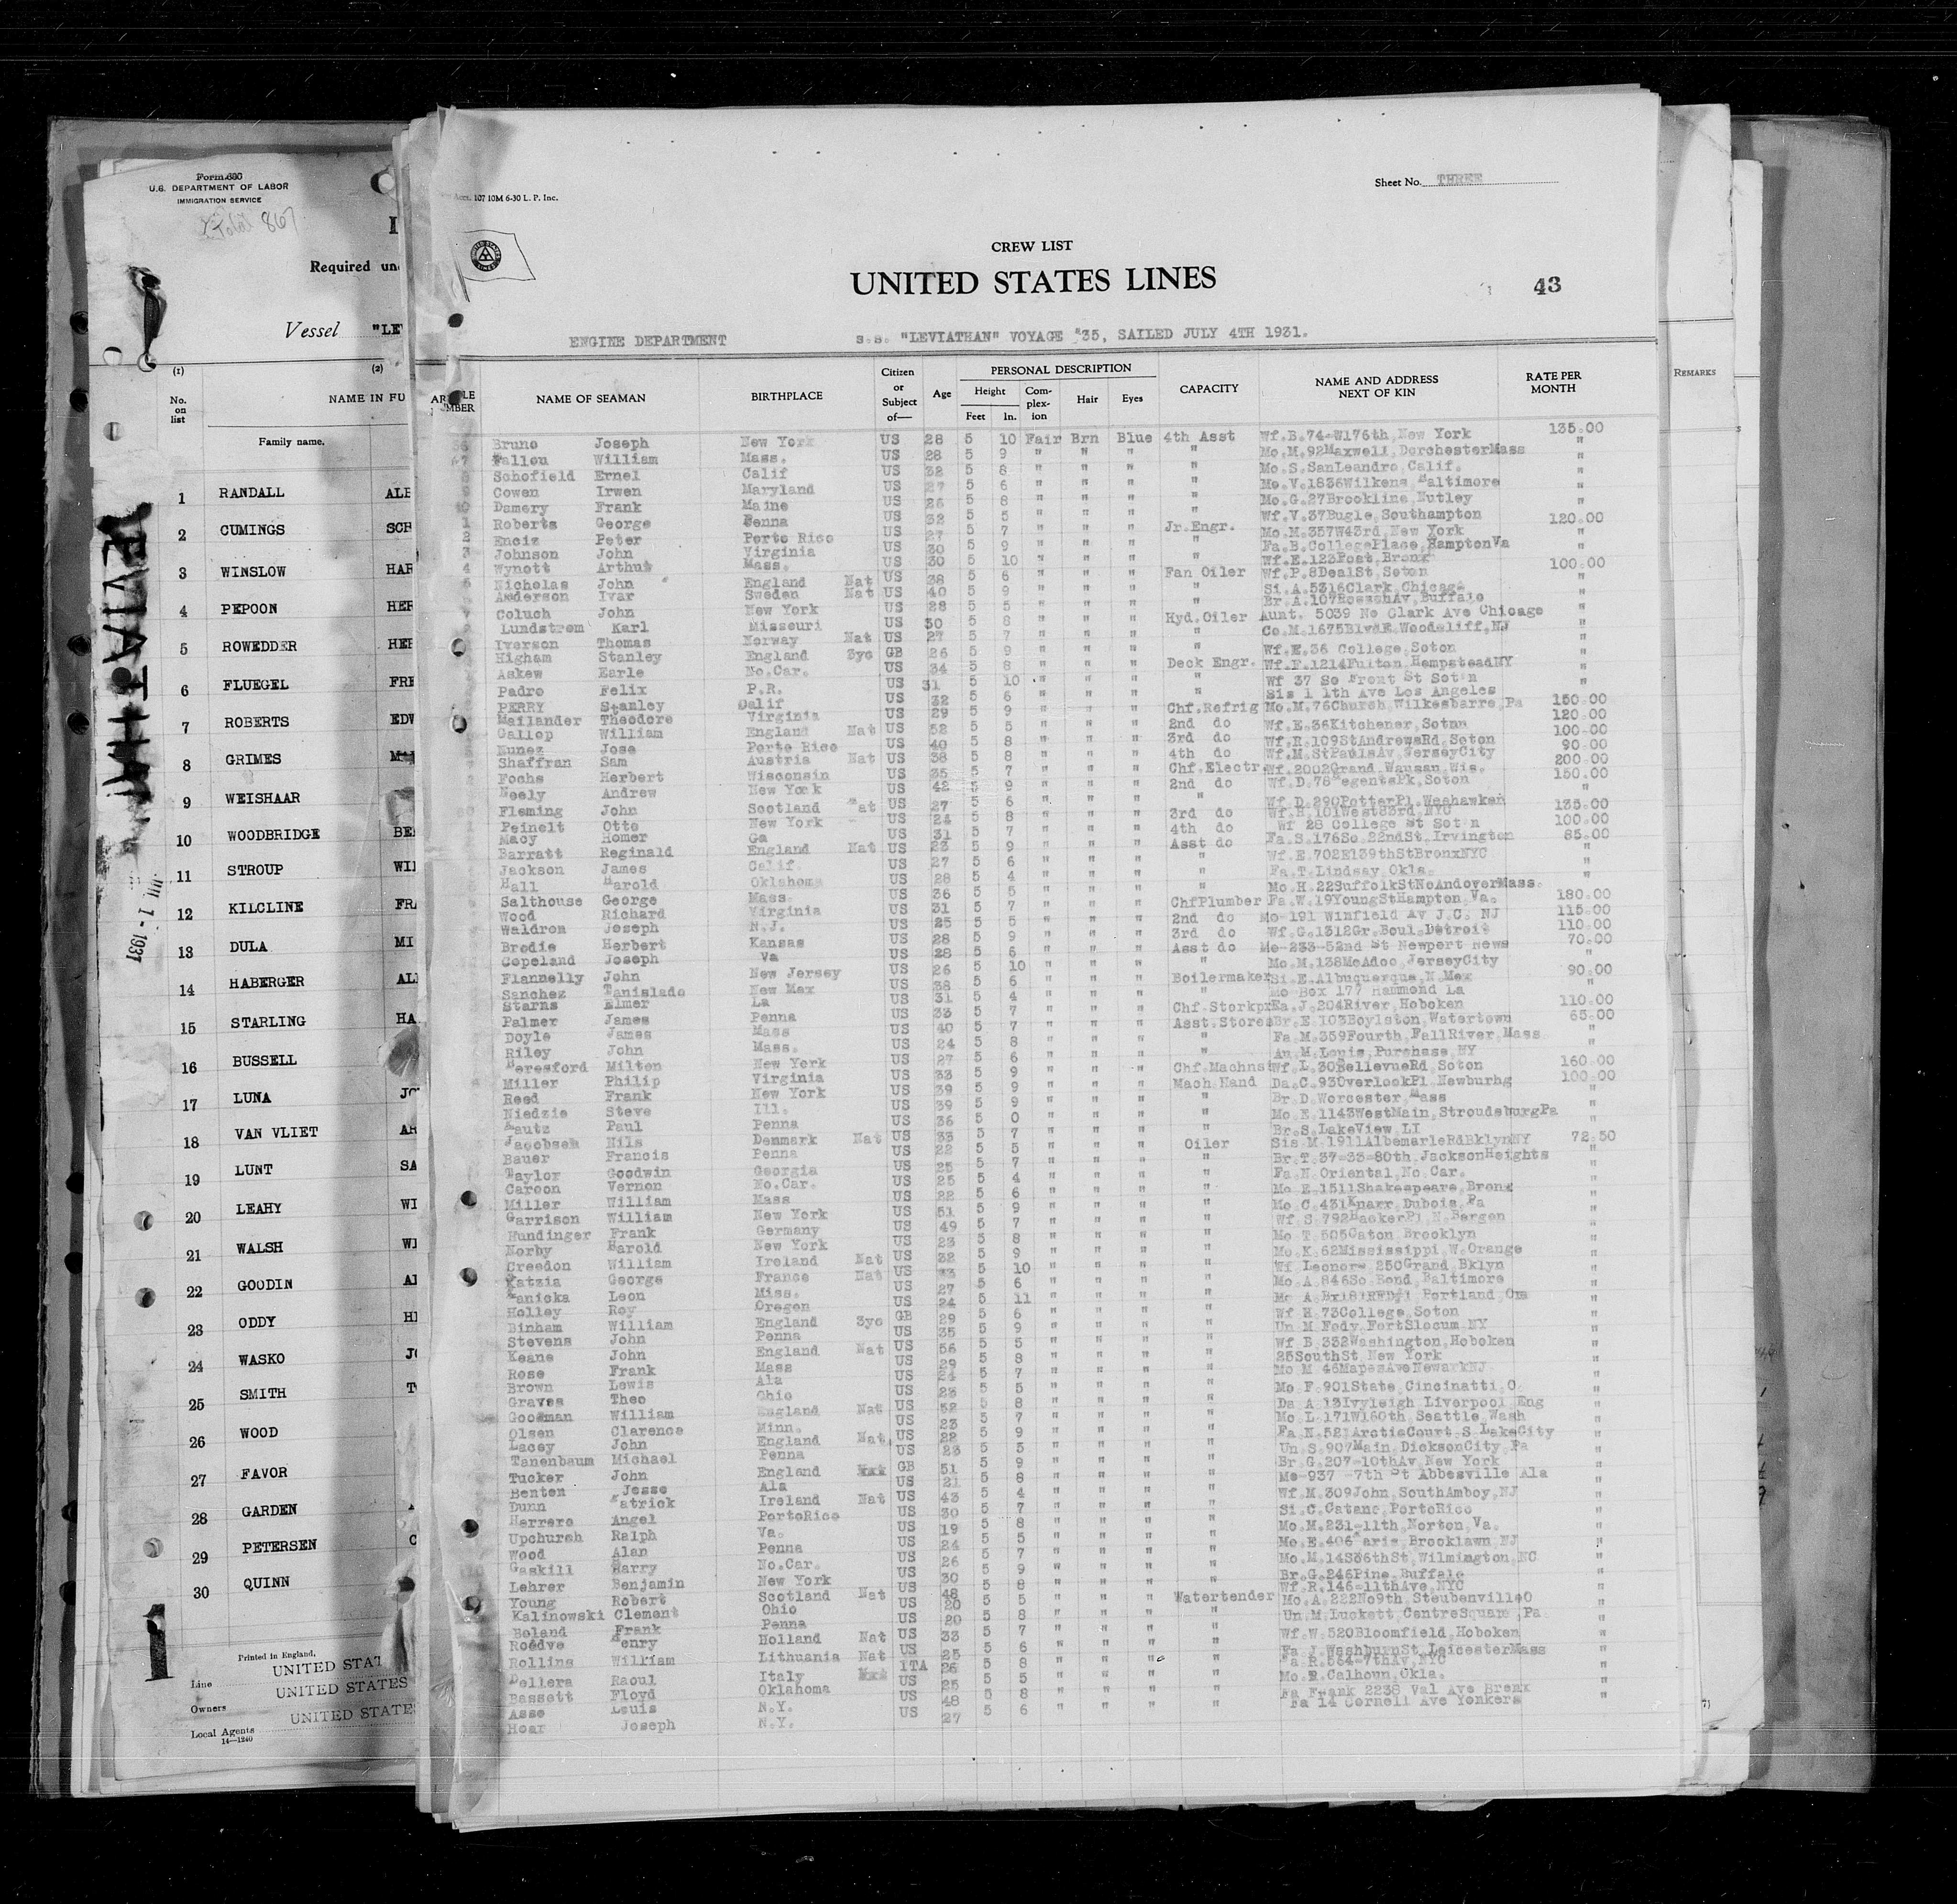 Form 680
U.S. DEPARTMENT OF LABOR
IMMIGRATION SERVICE
Total 867
Required un
Vessel "LE
(1) (2)
No. on list
NAME IN FU
Family name.
1 RANDALL
2 CUMINGS SCH
3 WINSLOW HAR
4 PEPOON HER
5 ROWEDDER HER
6 FLUEGEL FRE
7 ROBERTS EDW
8 GRIMES
9 WEISHAAR
10 WOODBRIDGE BE
11 STROUP WIL
12 KILCLINE FRA
13 DULA MI
14 HABERGER AL
15 STARLING HA
16 BUSSELL
17 LUNA JO
18 VAN VLIET AR
19 LUNT SA
20 LEAHY WI
21 WALSH WI
22 GOODIN AL
23 ODDY HE
24 WASKO JO
25 SMITH T
26 WOOD
27 FAVOR
28 GARDEN
29 PETERSEN C
30 QUINN
LEVIATHAN
JUL 1 - 1931
1
Printed in England,
Line UNITED STAT
Owners UNITED STATES
Local Agents UNITED STATE
14—1240
107 10M 6-30 L. P. Inc.
Sheet No. THREE
CREW LIST
UNITED STATES LINES
43
ENGINE DEPARTMENT s.s. "LEVIATHAN" VOYAGE #35, SAILED JULY 4TH 1931.
NAME OF SEAMAN BIRTHPLACE Citizen or Subject of— Age PERSONAL DESCRIPTION Height Feet In. Complexion Hair Eyes CAPACITY NAME AND ADDRESS NEXT OF KIN RATE PER MONTH
REMARKS
Bruno Joseph New York US 28 5 10 Fair Brn Blue 4th Asst Wf.B.74-W176th,New York 135.00
Fallon William Mass. US 28 5 9 " " " " Mo.M.92Maxwell,DorchesterMass "
Schofield Ernel Calif US 32 5 8 " " " " Mo.S.SanLeandro,Calif. "
Cowen Irwen Maryland US 27 5 6 " " " " Mo.V.1836Wilkens,Baltimore "
Damery Frank Maine US 26 5 8 " " " " Mo.G.27Brookline,Nutley "
Roberts George Penna US 32 5 5 " " " " Wf.V.37Bugle,Southampton "
Enciz Peter Porto Rico US 27 5 7 " " " Jr.Engr. Mo.M.357W43rd,New York 120.00
Johnson John Virginia US 30 5 9 " " " " Fa.B.CollegePlace,HamptonVa "
Wynott Arthur Mass. US 30 5 10 " " " " Wf.E.123Post,Bronx "
Nicholas John England Nat US 38 5 6 " " " Fan Oiler Wf.P.8DealSt,Soton 100.00
Anderson Ivar Sweden Nat US 40 5 9 " " " " Si.A.5316Clark,Chicago "
Coluch John New York US 28 5 5 " " " " Br.A.107RoeschAv,Buffalo "
Lundstrom Karl Missouri US 30 5 8 " " " Hyd.Oiler Aunt. 5039 No Clark Ave Chicago "
Iverson Thomas Norway Nat US 27 5 7 " " " " Co.M.1675BlvdE.Woodcliff,NJ "
Higham Stanley England 3yc GB 26 5 9 " " " " Wf.E.36 College,Soton "
Askew Earle No.Car. US 34 5 8 " " " Deck Engr. Wf.F.1214Fulton,HempsteadNY "
Padro Felix P.R. US 31 5 10 " " " " Wf 37 So Front St Soton "
PERRY Stanley Calif US 32 5 6 " " " " Sis 1 1th Ave Los Angeles "
Mailander Theodore Virginia US 29 5 9 " " " Chf.Refrig Mo.M.76Church,Wilkesbarre,Pa 150.00
Gallop William England Nat US 52 5 5 " " " 2nd do Wf.E.36Kitchener,Sotnn 120.00
Nunez Jose Porto Rico US 40 5 8 " " " 3rd do Wf.R.109StAndrewsRd,Soton 100-00
Shaffran Sam Austria Nat US 38 5 8 " " " 4th do Wf.M.StPaulsAv,JerseyCity 90.00
Fochs Herbert Wisconsin US 35 5 7 " " " Chf.Electr. Wf.2002Grand,Wausau,Wis. 200.00
Neely Andrew New York US 42 5 9 " " " 2nd do Wf.D.78RegentsPk,Soton 150.00
Fleming John Scotland Nat US 27 5 6 " " " " Wf.D.290PotterPl.Weehawken "
Peinelt Otto New York US 24 5 8 " " " 3rd do Wf.H.101West83rd,NYC 135.00
Macy Homer Ga US 31 5 7 " " " 4th do Wf 28 College St Soton 100.00
Barratt Reginald England Nat US 23 5 9 " " " Asst do Fa.S.176So.22ndSt,Irvington 85.00
Jackson James Calif. US 27 5 6 " " " " Wf.E.702E139thStBronxNYC "
Hall Harold Oklahoma US 28 5 4 " " " " Fa.T.Lindsay,Okla. "
Salthouse George Mass. US 36 5 5 " " " " Mo.H.22SuffolkStNoAndoverMass. "
Wood Richard Virginia US 31 5 7 " " " ChfPlumber Fa.W.19YoungStHampton,Va. 180.00
Waldron Joseph N.J. US 25 5 5 " " " 2nd do Mo-191 Winfield Av J.C. NJ 115.00
Brodie Herbert Kansas US 28 5 9 " " " 3rd do Wf.G.1312Gr.Boul.Detroit 110.00
Copeland Joseph Va US 28 5 6 " " " Asst do Mo-233-52nd St Newport News 70.00
Flannelly John New Jersey US 26 5 10 " " " " Mo.M.138McAdoo,JerseyCity "
Sanchez Tanislado New Mex US 38 5 6 " " " Boilermaker Si.E.Albuquerque,N.Mex 90.00
Starns Elmer La US 31 5 4 " " " " Mo Box 177 Hammond La "
Palmer James Penna US 33 5 7 " " " Chf.Storkpr Fa.J.204River,Hoboken 110.00
Doyle James Mass US 40 5 7 " " " Asst.Stores Br.E.103Boylston,Watertown 65.00
Riley John Mass. US 24 5 8 " " " " Fa.M.359Fourth,FallRiver,Mass "
Beresford Milton New York US 27 5 6 " " " " An.M.Louis,Purchase,NY "
Miller Philip Virginia US 33 5 9 " " " Chf.Machnst Wf.L.30BellevueRd,Soton 160.00
Reed Frank New York US 39 5 9 " " " Mach Hand Da.C.93OverlookPl.Newburhg 100.00
Niedzie Steve Ill. US 39 5 9 " " " " Br.D.Worcester,Mass "
Kautz Paul Penna US 36 5 0 " " " " Mo.E.1143WestMain,StroudsburgPa "
Jacobsen Nils Denmark Nat US 33 5 7 " " " " Br.S.LakeView,LI "
Bauer Francis Penna US 22 5 5 " " " Oiler Sis.M.1911AlbemarleRdBklynNY 72.50
Taylor Goodwin Georgia US 25 5 7 " " " " Br.T.37-33-80th,JacksonHeights "
Caroon Vernon No.Car. US 25 5 4 " " " " Fa.N.Oriental,No.Car. "
Miller William Mass US 22 5 6 " " " " Mo.E.1511Shakespeare,Bronx "
Garrison William New York US 51 5 9 " " " " Mo.C.431Knarr,Dubois,Pa "
Hundinger Frank Germany US 49 5 7 " " " " Wf.S.792HackerPl.N.Bergen "
Norby Harold New York US 23 5 8 " " " " Mo T.505Caton,Brooklyn "
Creedon William Ireland Nat US 32 5 9 " " " " Mo.K.62Mississippi,W.Orange "
Katzia George France Nat US 33 5 10 " " " " Wf Leonore,250Grand,Bklyn "
Kanicka Leon Miss. US 27 5 6 " " " " Mo.A.846So.Bond,Baltimore "
Holley Roy Oregon US 24 5 11 " " " " Mo A.Bx181RFD#1 Portland,Ore "
Binham William England 3yc GB 29 5 6 " " " " Wf H.73College,Soton "
Stevens John Penna US 35 5 9 " " " " Un M.Fedy,FortSlocum,NY "
Keane John England Nat US 56 5 5 " " " " Wf B.332Washington,Hoboken "
Rose Frank Mass US 29 5 8 " " " " 25SouthSt,New York "
Brown Lewis Ala US 24 5 7 " " " " Mo M 46MapesAveNewarkNJ. "
Graves Theo Ohio US 23 5 5 " " " " Mo F.901State,Cincinatti,O. "
Goodman William England Nat US 52 5 8 " " " " Da A.13Ivyleigh Liverpool,Eng "
Olsen Clarence Minn. US 23 5 7 " " " " Mo L.171W160th,Seattle,Wash "
Lacey John England Nat. US 22 5 9 " " " " Fa.N.521ArcticCourt,S.LakeCity "
Tanenbaum Michael Penna US 23 5 5 " " " " Un.S.907Main,DicksonCity,Pa "
Tucker John England GB 51 5 9 " " " " Br.G.207-10thAv,New York "
Benten Jesse Ala US 21 5 8 " " " " Mo-937-7th St Abbesville Ala "
Dunn Patrick Ireland Nat US 43 5 4 " " " " Wf.M.309John,SouthAmboy,NJ "
Herrero Angel PortoRico US 30 5 7 " " " " Si.C.Catano,PortoRico "
Upchurch Ralph Va. US 19 5 8 " " " " Mo.M.231-11th,Norton,Va. "
Wood Alan Penna US 24 5 5 " " " " Mo.E.406Paris,Brooklawn,NJ "
Gaskill Harry No.Car. US 26 5 7 " " " " Mo.M.14S36thSt,Wilmington,NC "
Lehrer Benjamin New York US 30 5 9 " " " " Br.G.246Pine,Buffalo "
Young Robert Scotland Nat US 48 5 8 " " " " Wf.R.146-11thAve,NYC "
Kalinowski Clement Ohio US 20 5 5 " " " Watertender Mo.A.222No9th,SteubenvilleO "
Boland Frank Penna US 20 5 8 " " " " Un.M.Luckett,CentreSquare,Pa "
Roedve Henry Holland Nat US 33 5 7 " " " " Wf.W.520Bloomfield,Hoboken "
Rollins William Lithuania Nat US 25 5 6 " " " " Fa J.WashburnSt,LeicesterMass "
Dellera Raoul Italy ITA 26 5 8 " " " " Fa.R.564-7thAv,NYC "
Bassett Floyd Oklahoma US 25 5 5 " " " " Mo.R.Calhoun,Okla. "
Asse Louis N.Y. US 48 5 8 " " " " Fa Frank 2238 Val Ave Bronx "
Hoar Joseph N.Y. US 27 5 6 " " " " Fa 14 Cornell Ave Yonkers "